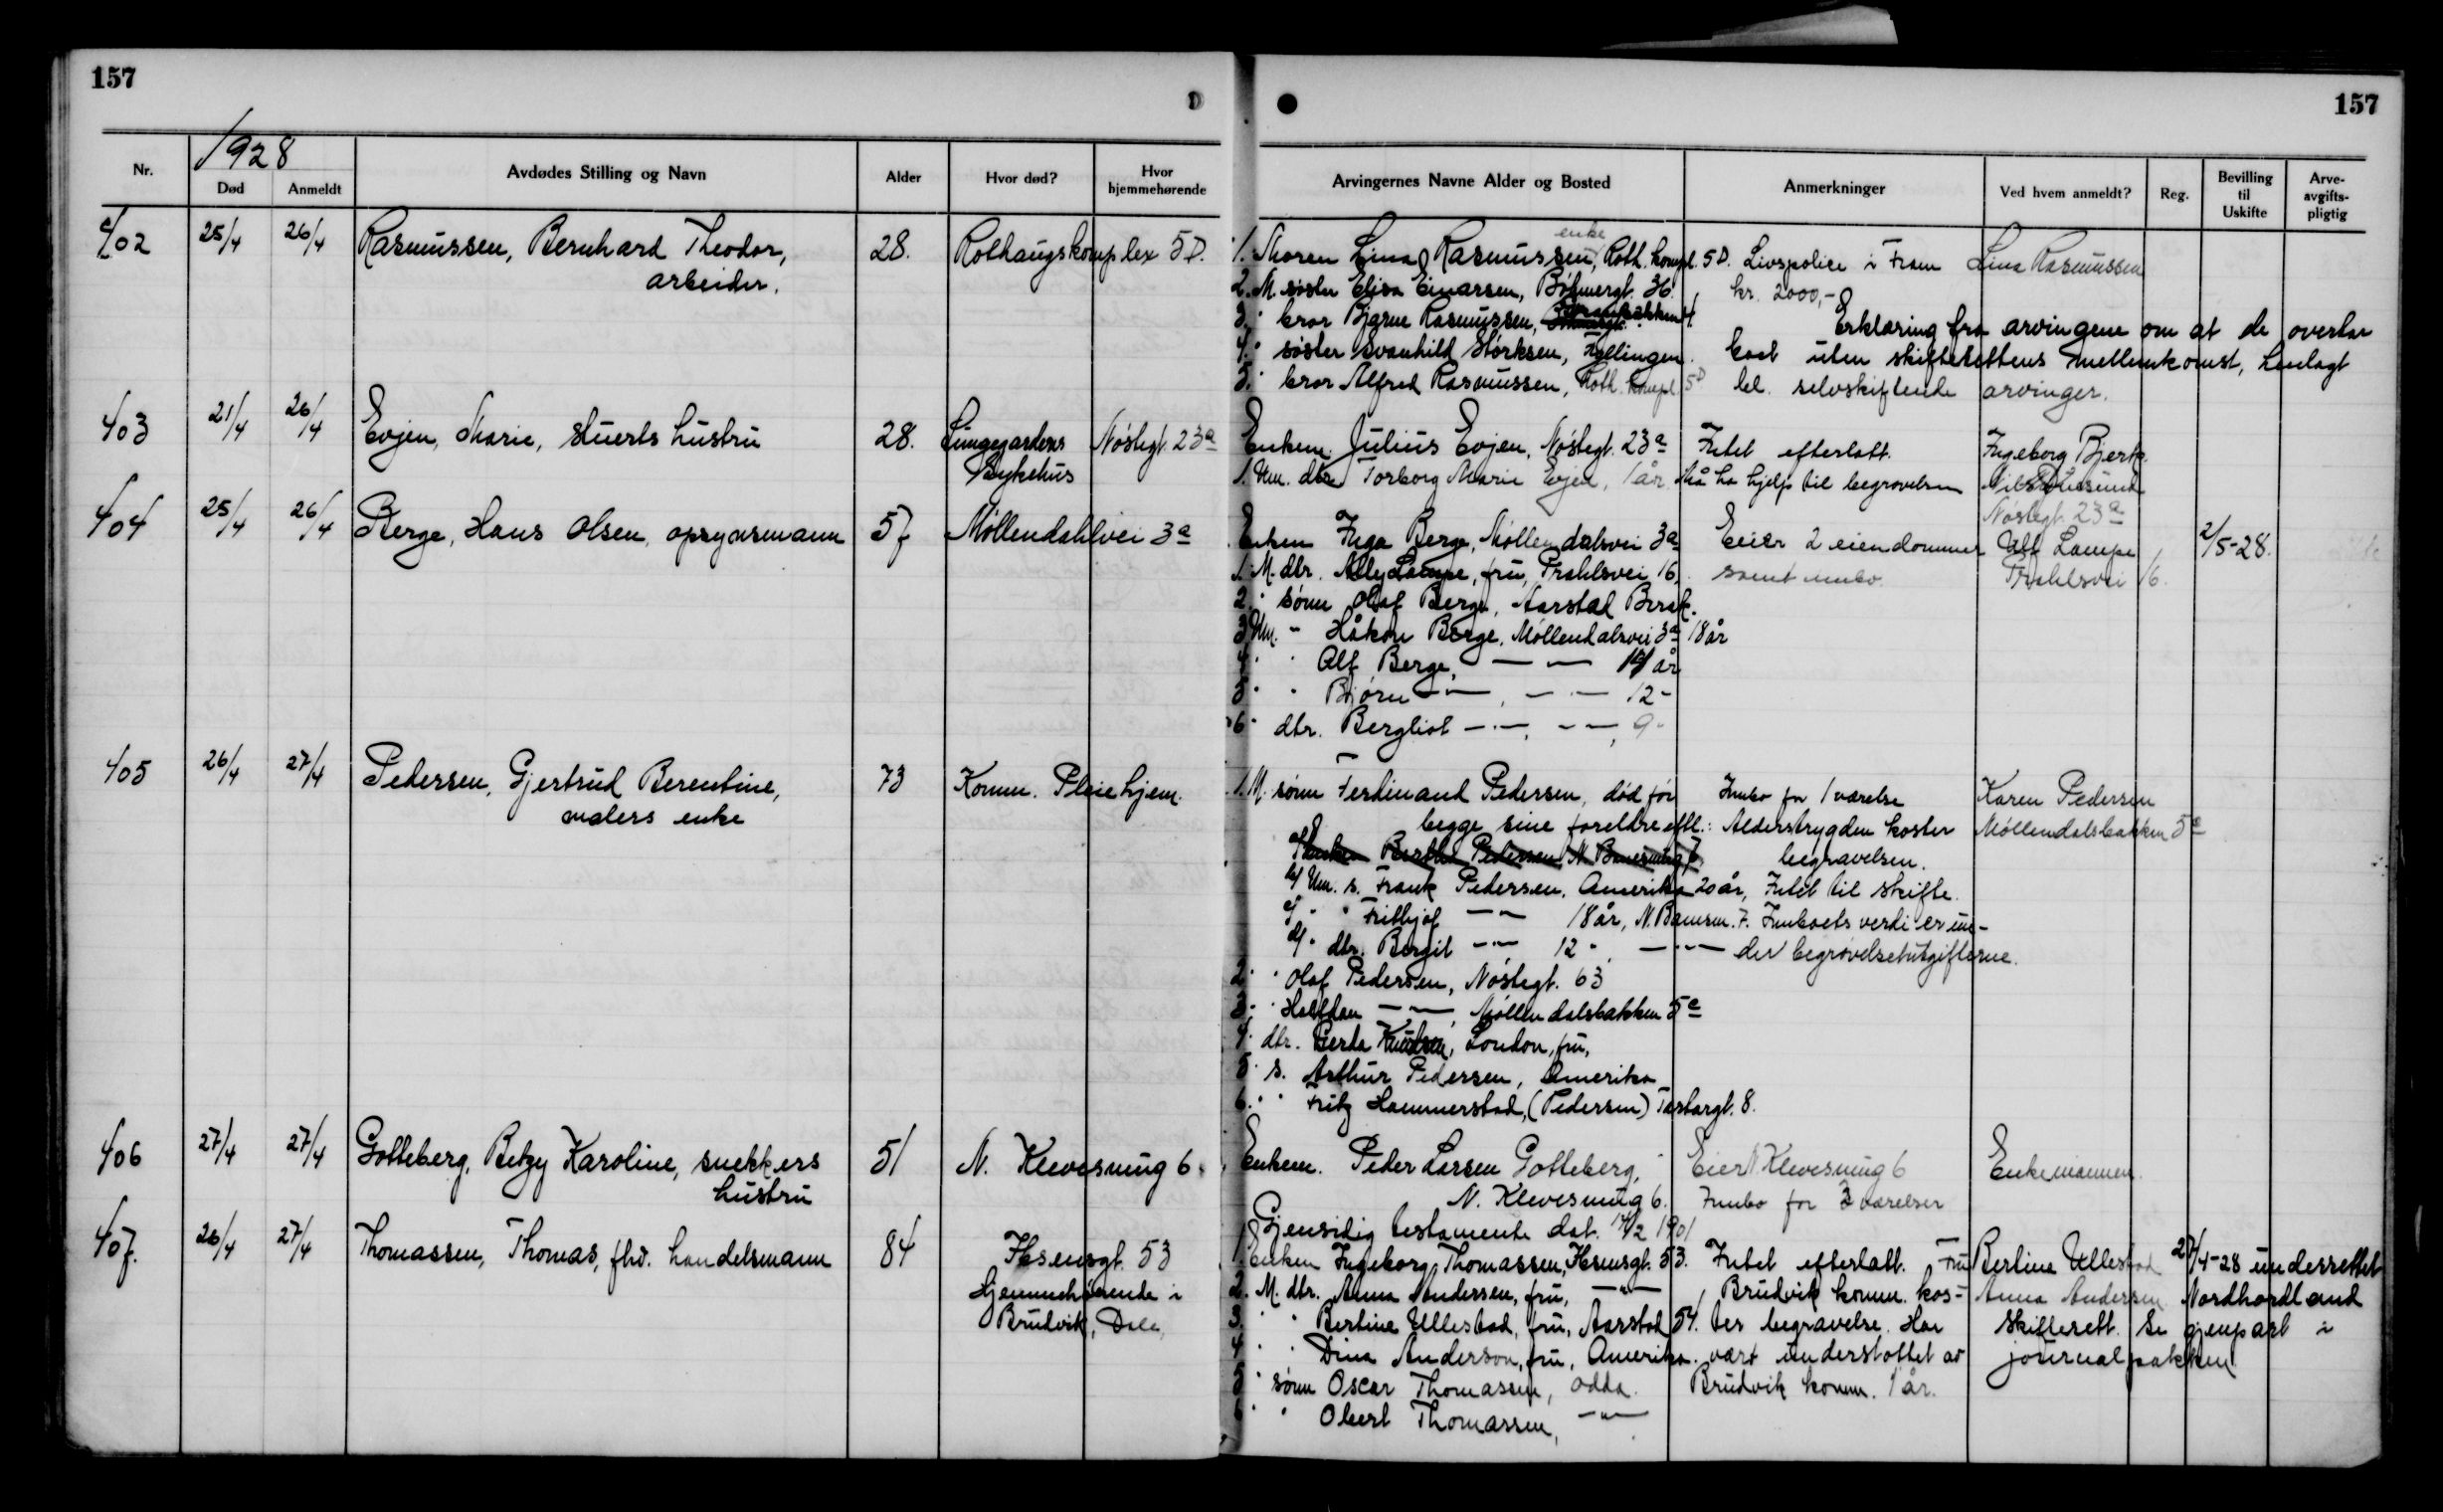 157
157
1928
Nr.
Død
Anmeldt
Avdødes Stilling og Navn
Alder
Hvor død?
Hvor hjemmehørende
Arvingernes Navne Alder og Bosted
Anmerkninger
Ved hvem anmeldt?
Reg.
Bevilling til Uskifte
Arve-avgifts-pligtig
402 25/4 26/4 Rasmussen, Bernhard Theodor, 28. Rothaugskomplex 5D.
arbeider.
enke
1. Moren Lina Rasmussen, Roth. kompl. 5D. Livspolice i Fram Lina Rasmussen
2. M. søster Elisa Einarsen, 36. kr. 2000,-
3. " bror Bjarne Rasmussen, 4. Erklæring fra arvingene om at de overtar
4. " søster Svanhild Størksen, Fyllingen. boet uten skifterettens mellemkomst, henlagt
5. " bror Alfred Rasmussen, Roth. kompl. 5D bl. selvskiftende arvinger.
403 21/4 26/4 Evjen, Marie, stuerts hustru 28. Lungegardens Nøstegt. 23a
Sykehus
Enkem. Julius Evjen, Nøstegt. 23a Intet efterlatt. Ingeborg Bjerk
1. Um. dtr. Torborg Marie Evjen, 1 år. Må ha hjelp til begravelsen
Nøstegt. 23a
404 25/4 26/4 Berge, Hans Olsen, opsynsmann 57 Møllendahlvei 3a
Enken Inga Berge, Møllendalsvei 3a Eier 2 eiendommer Ulf Lampe 2/5-28.
1. M. dtr. Ally Lampe, fru, Prahlsvei 16, samt innbo. Prahlsvei 16.
2. " sønn Olaf Berge, Aarstad Brak.
3 Um. - Håkon Berge, Møllendalsvei 3a 18 år
4 " " Alf Berge, — " — 14 år
5 " " Bjørn — " —, — " — 12 -
6 " dtr. Bergliot — " —, — " —, 9 -
405 26/4 27/4 Pedersen, Gjertrud Berentine, 73 Komm. Pleiehjem.
malers enke
1. M. sønn Ferdinand Pedersen, død før Innbo for 1 værelse Karen Pedersen
begge sine foreldre eftl.: Alderstrygden koster Møllendalsbakken 5e
a/ Enken Berthe Pedersen N. 7 begravelsen.
b/ Um. s. Frank Pedersen, Amerika 20 år, Intet til skifte.
c/ " " Frithjof — " — 18 år, N. 7. Innboets verdi er un-
d/ " dtr. Bergit — " — 12 " — " — der begravelsesutgifterne.
2 " " Olaf Pedersen, Nøstegt. 63
3 " " Halfdan — " —, Møllendalsbakken 5e
4 " dtr. Berta Knudsen, London, fru,
5 " s. Arthur Pedersen, Amerika
6. " " Fritz Hammerstad, (Pedersen) Tartargt. 8.
406 27/4 27/4 Gotteberg, Betzy Karoline, snekkers 51 N. Klevesmug 6.
hustru
Enkem. Peder Larsen Gotteberg, Eier N. Klevesmug 6 Enkemannen.
N. Klevesmug 6. Innbo for 3 værelser
Gjensidig testamente dat. 14/2 1901
407. 26/4 27/4 Thomassen, Thomas, fhv. handelsmann 84 Ibsensgt. 53
Hjemmehørende i
Brudvik, Dale,
1. Enken Ingeborg Thomassen, Ibsensgt. 53. Intet efterlatt. Fru Bertine Ullestad 27/4-28 underrettet
2. M. dtr. Anna Andersen, fru, — " — Brudvik komm. kos- Anna Andersen Nordhordland
3. " " Bertine Ullestad, fru, Aarstad 54. ter begravelse. Har skifterett. Se gjenpart i
4 " " Dina Anderson, fru, Amerika. vært understøttet av journalpakken
5 " sønn Oscar Thomassen, Odda. Brudvik komm. 1 år.
6 " " Obert Thomassen, — " —